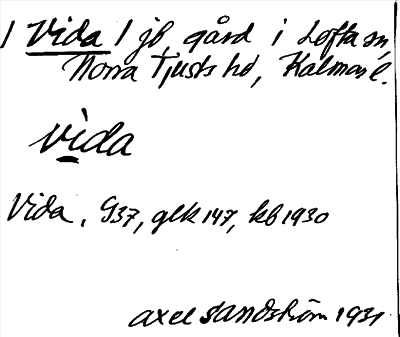 / Vida / jb, gård i Lofta sn,
Norra Tjusts hd, Kalmar l.
vida
Vida, G37, glk 147, kb 1930
Axel Sandström 1931